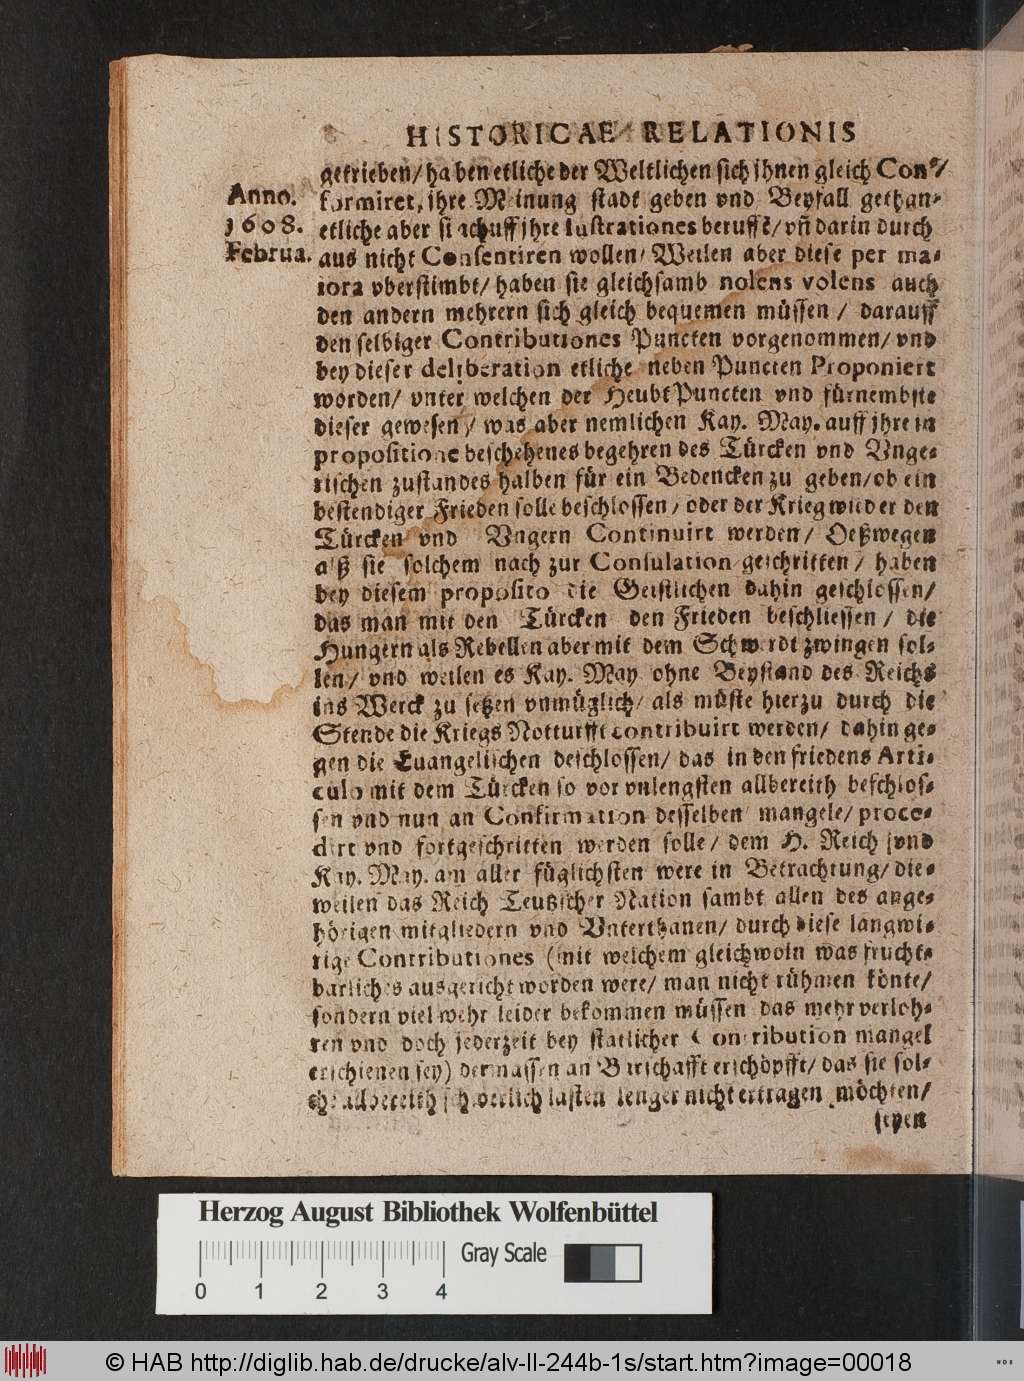 HISTORICAE RELATIONIS
getrieben/ haben etliche der Weltlichen sich jhnen gleich Con-/
Anno.
1608.
Februa.
formiret, jhre Meinung stadt geben vnd Beyfall gethan-
etliche aber sich auff jhre Iustrationes berufft/ vñ darin durch
aus nicht Consentiren wollen/ Weilen aber diese per ma-
iora vberstimbt/ haben sie gleichsamb nolens volens auch
den andern mehrern sich gleich bequemen müssen / darauff
den selbiger Contributiones Puncten vorgenommen/ vnd
bey dieser deliberation etliche neben Puncten Proponiert
worden/ vnter welchen der Heubt Puncten vnd fürnembste
dieser gewesen/ was aber nemlichen Kay. May. auff jhre in
propositione beschehenes begehren des Türcken vnd Vnge-
rischen zustandes halben für ein Bedencken zu geben/ ob ein
bestendiger Frieden solle beschlossen/ oder der Krieg wieder den
Türcken vnd Vngern Continuirt werden/ Deßwegen
alß sie solchem nach zur Consulation geschritten/ haben
bey diesem proposito die Geistlichen dahin geschlossen/
das man mit den Türcken den Frieden beschliessen / die
Hungern als Rebellen aber mit dem Schwerdt zwingen sol-
len/ vnd weilen es Kay. May ohne Beystand des Reichs
ins Werck zu setzen vnmüglich/ als müste hierzu durch die
Stende die Kriegs Notturfft contribuirt werden/ dahin ge-
gen die Euangelischen beschlossen/ das in den friedens Arti-
culo mit dem Türcken so vor vnlengsten allbereith beschlos-
sen vnd nun an Confirmation desselben mangele/ proce-
dirt vnd fortgeschritten werden solle/ dem H. Reich vnd
Kay. May. am aller füglichsten were in Betrachtung/ die-
weilen das Reich Teutzscher Nation sambt allen des ange-
hörigen mitgliedern vnd Vnterthanen/ durch diese langwi-
rige Contributiones (mit welchem gleichwoln was frucht-
barliches ausgericht worden were/ man nicht rühmen könte/
sondern viel mehr leider bekommen müssen das mehr verloh-
ren vnd doch jederzeit bey statlicher Contribution mangel
erschienen sey) dermassen an Barschafft erschöpfft/ das sie sol-
che allbereith schwerlich lasten lenger nicht ertragen möchten/
seyen
Herzog August Bibliothek Wolfenbüttel
Gray Scale
0 1 2 3 4
© HAB http://diglib.hab.de/drucke/alv-ll-244b-1s/start.htm?image=00018